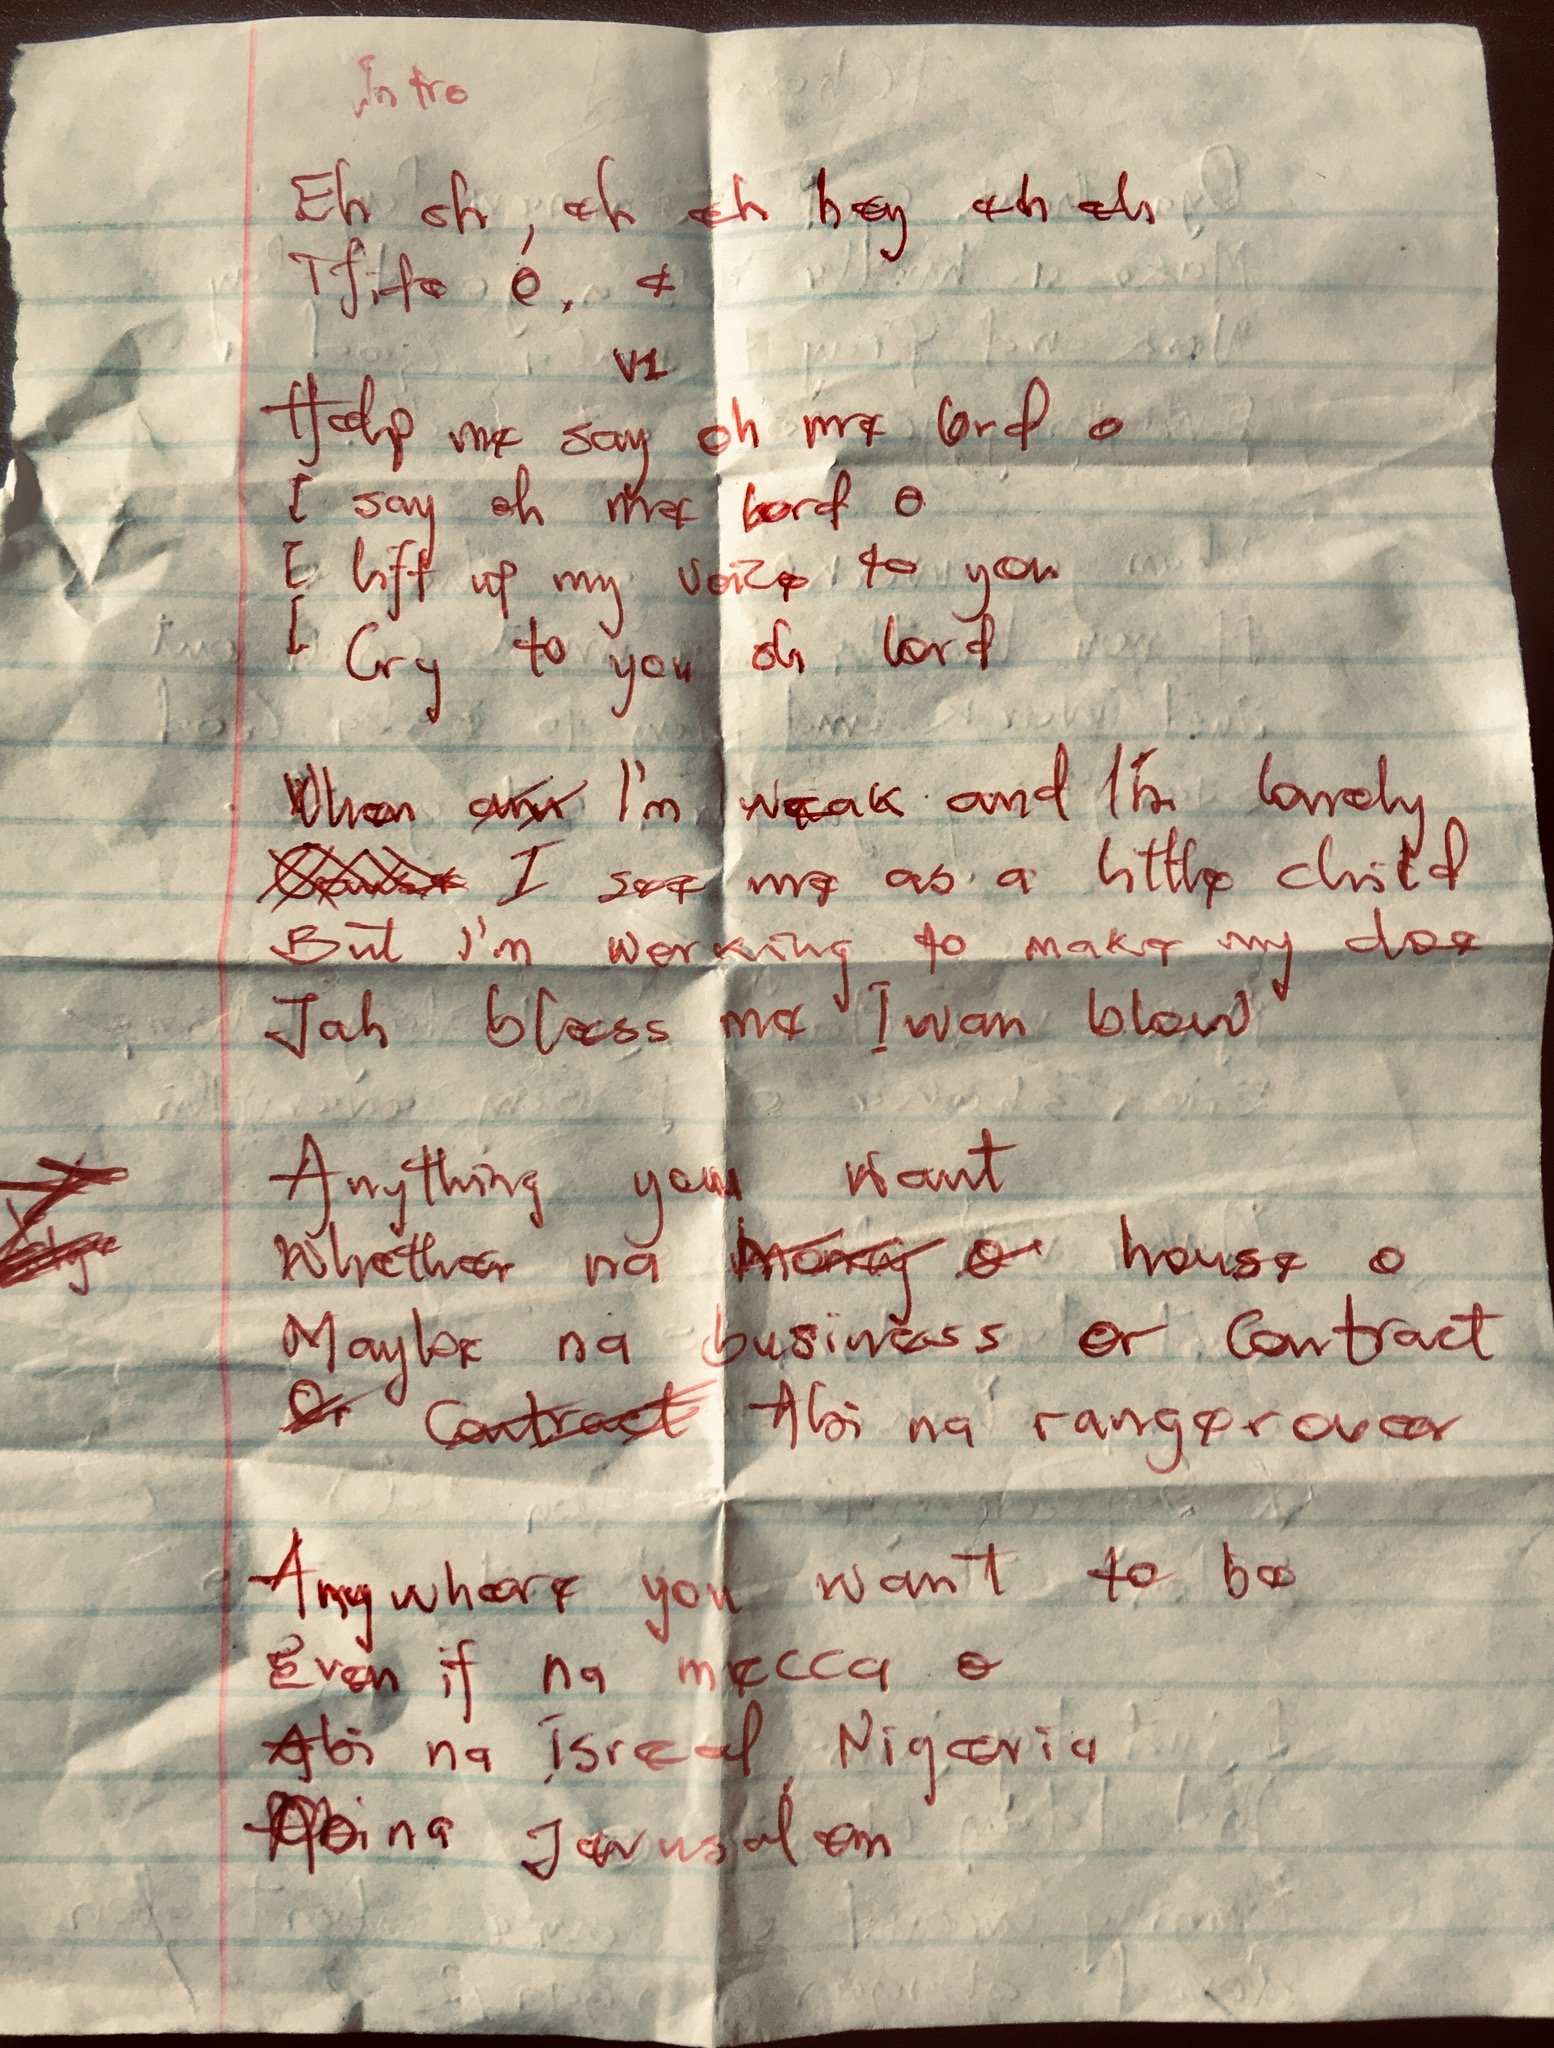 Intro
Eh eh, eh eh hey eh eh
V1
Help me say oh me lord o
I say oh me lord o
I lift up my voice to you
I Cry to you oh lord
When I'm weak and I'm lonely
I see me as a little child
But I'm working to make my doe
Jah bless me I wan blow
Anything you want
Whether na money o house o
Maybe na business or Contract
Or Contract Abi na rangerover
Anywhere you want to be
Even if na mecca o
Abi na Isreal, Nigeria
Abi na Jerusalem